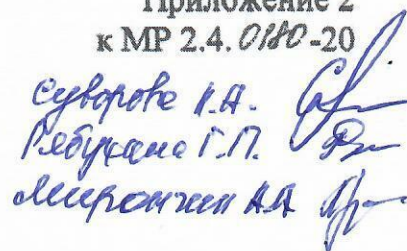 Приложение 2
к МР 2.4.0180-20
Суворова Н.А.
Рябухина Г.П.
Мирончик А.А.